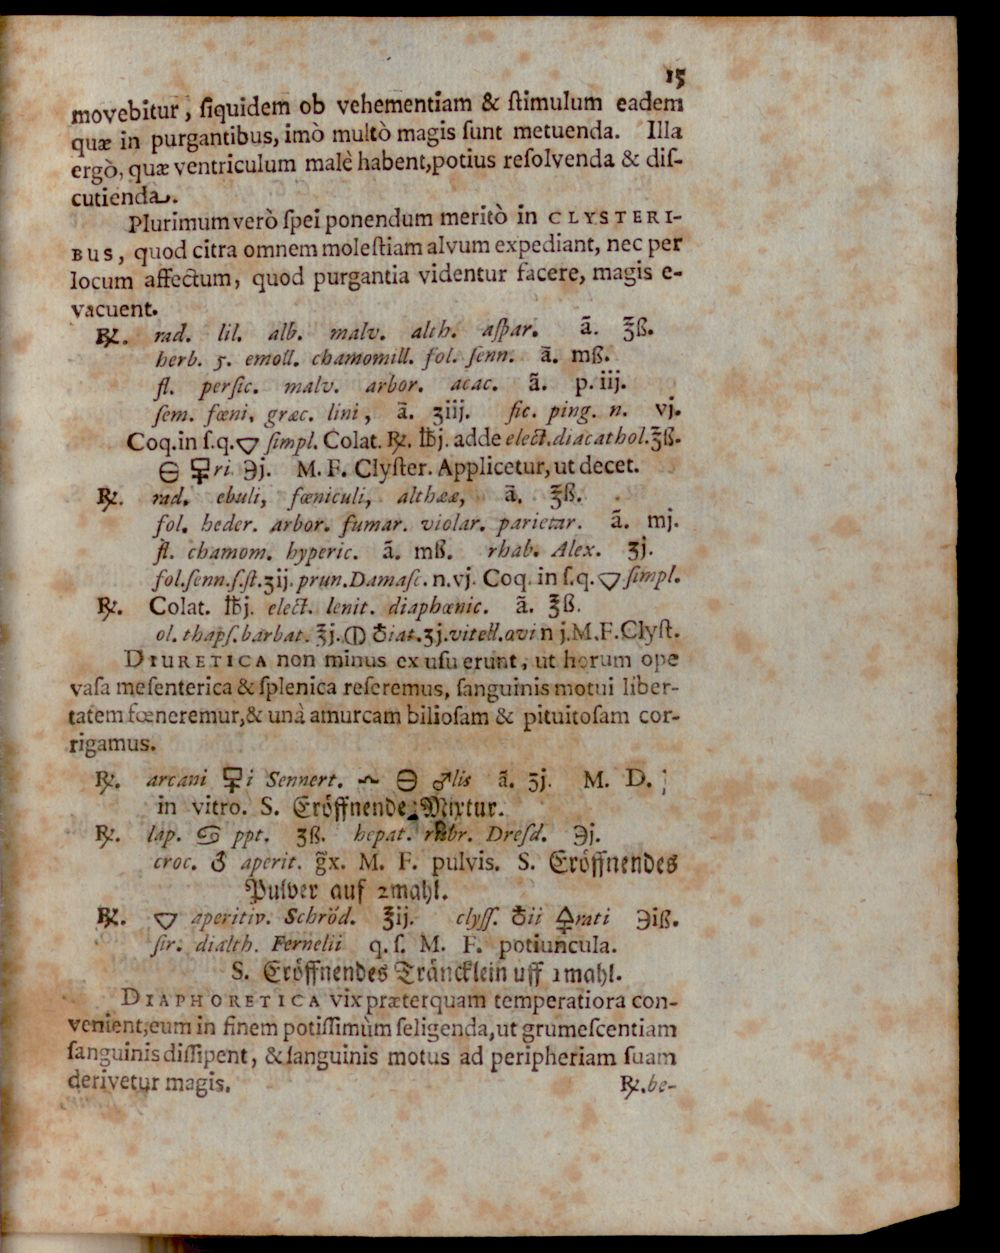 15
movebitur, ſiquidem ob vehementiam & ſtimulum eadem
quæ in purgantibus, imò multò magis ſunt metuenda. Illa
ergò, quæ ventriculum malè habent, potius reſolvenda & diſ-
cutienda.
Plurimum verò ſpei ponendum meritò in CLYSTERI-
BUS, quod citra omnem moleſtiam alvum expediant, nec per
locum affectum, quod purgantia videntur facere, magis e-
vacuent.
℞. rad. lil. alb. malv. alth. aſpar. ã. ℥ß.
herb. 5. emoll. chamomill. fol. ſenn. ã. mß.
fl. perſic. malv. arbor. acac. ã. p. iij.
ſem. fœni, græc. lini, ã. ʒiij. fic. ping. n. vj.
Coq. in ſ.q. 🜄 ſimpl. Colat. ℞. ℔j. adde elect. diacathol. ℥ß.
🜔 🜿ri ℈j. M. F. Clyſter. Applicetur, ut decet.
℞. rad. ebuli, fœniculi, althææ, ã. ℥ß.
fol. heder. arbor. fumar. violar. parietar. ã. mj.
fl. chamom. hyperic. ã. mß. rhab. Alex. ʒj.
fol. ſenn. ſ. ſt. ʒij. prun. Damaſc. n. vj. Coq. in ſ.q. 🜄 ſimpl.
℞. Colat. ℔j. elect. lenit. diaphœnic. ã. ℥ß.
ol. thapſ. barbat. ℥j. 🜕 ♁iat. ʒj. vitell. ovi n j. M. F. Clyſt.
DIURETICA non minus ex uſu erunt, ut horum ope
vaſa meſenterica & ſplenica reſeremus, ſanguinis motui liber-
tatem fœneremur, & unà amurcam bilioſam & pituitoſam cor-
rigamus.
℞. arcani 🜿i Sennert. 🜔 ♂lis ã. ʒj. M. D.
in vitro. S. Eröffnende Mixtur.
℞. lap. ♋ ppt. ʒß. hepat. rubr. Dreſd. ℈j.
croc. ♂ aperit. gx. M. F. pulvis. S. Eröffnendes
Pulver auf 2mahl.
℞. 🜄 aperitiv. Schröd. ℥ij. clyſſ. ♁ii 🜍rati ℈iß.
ſir. dialth. Fernelii q. ſ. M. F. potiuncula.
S. Eröffnendes Träncklein uff 1mahl.
DIAPHORETICA vix præterquam temperatiora con-
venient; eum in finem potiſſimùm ſeligenda, ut grumeſcentiam
ſanguinis diſſipent, & ſanguinis motus ad peripheriam ſuam
derivetur magis.
℞. be-